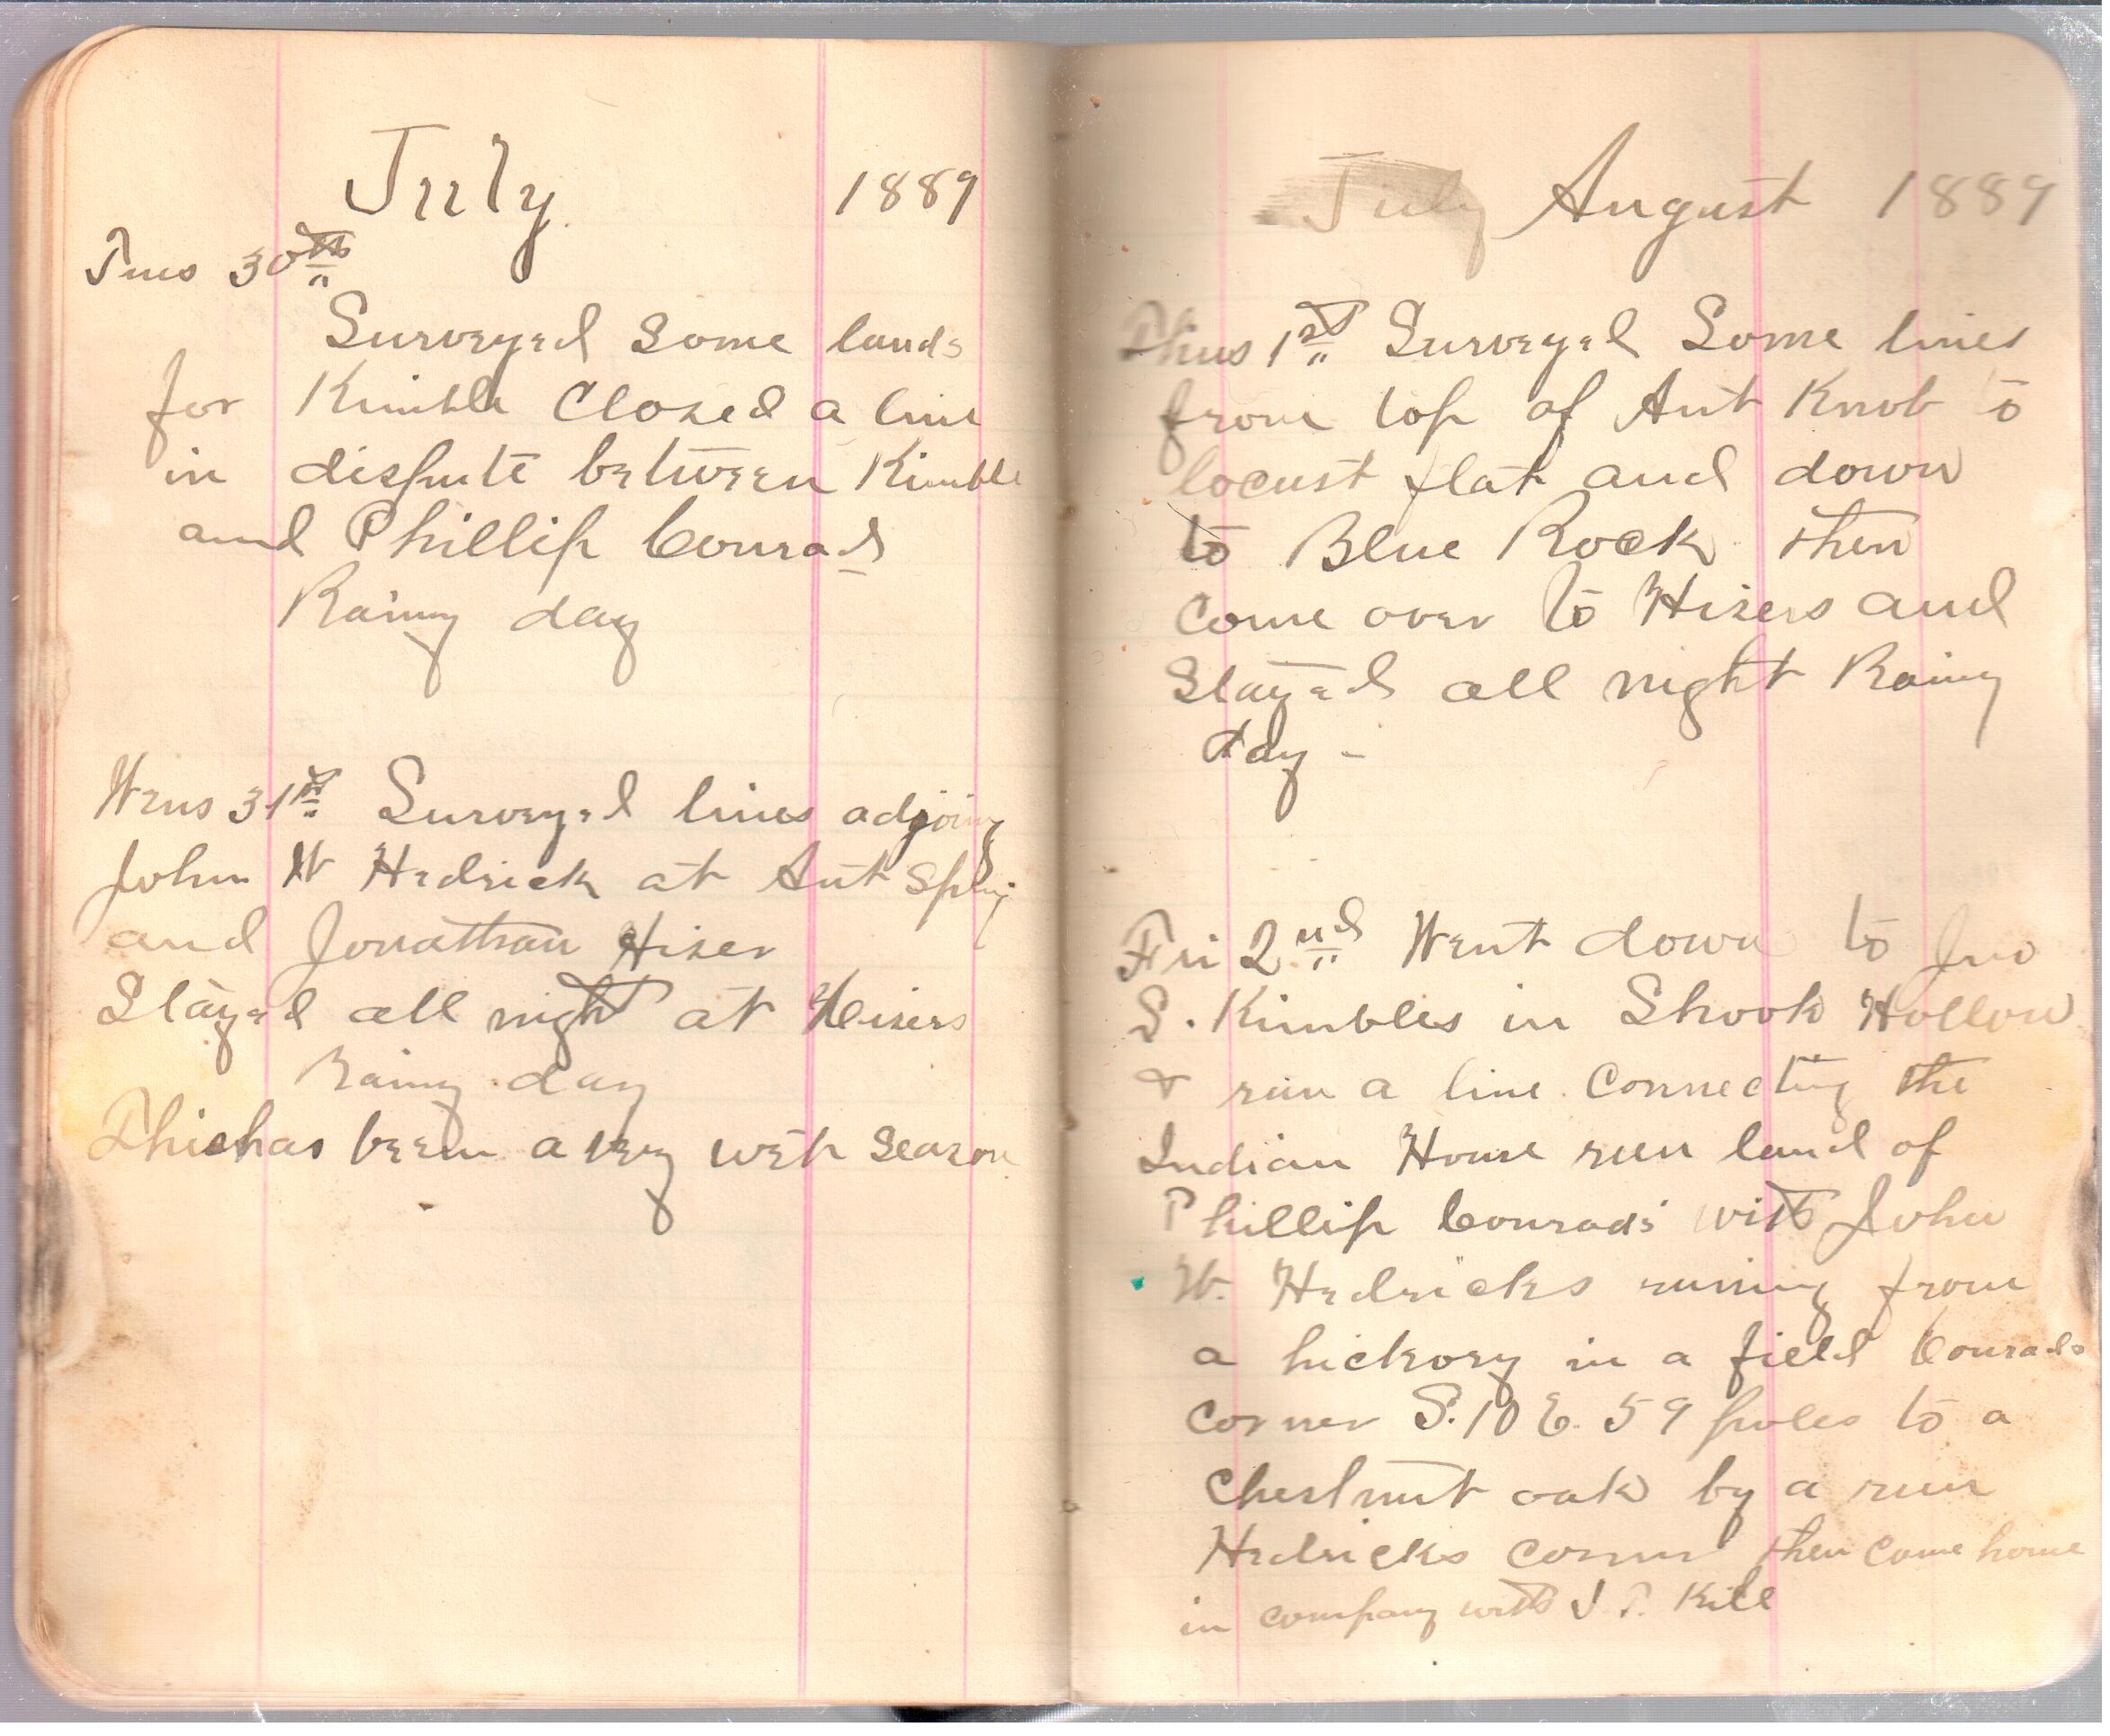 July 1889
Tues 30th
Surveyed Some lands
for Kimble Closed a line
in dispute between Kimble
and Phillip Conrad
Rainy day
Wens 31st Surveyed lines adjoing
John W Hedrick at Ant Spring
and Jonathan Hiser
Stayed all night at Heisers
Rainy day
This has been a very wet season
July August 1889
Thus 1st Surveyed Some lines
from top of Ant Knob to
locust flat and down
to Blue Rock then
Come over to Hisers and
Stayed all night Rainy
day -
Fri 2nd Went down to Jno
S. Kimbles in Shook Hollow
& run a line Connecting the
Indian House run land of
Phillip Conrads with John
W. Hedricks runing from
a hickrory in a field Conrads
Corner S. 10 E. 59 poles to a
Chestnut oak by a run
Hedricks Corner then Come home
in company with J. P. Kill